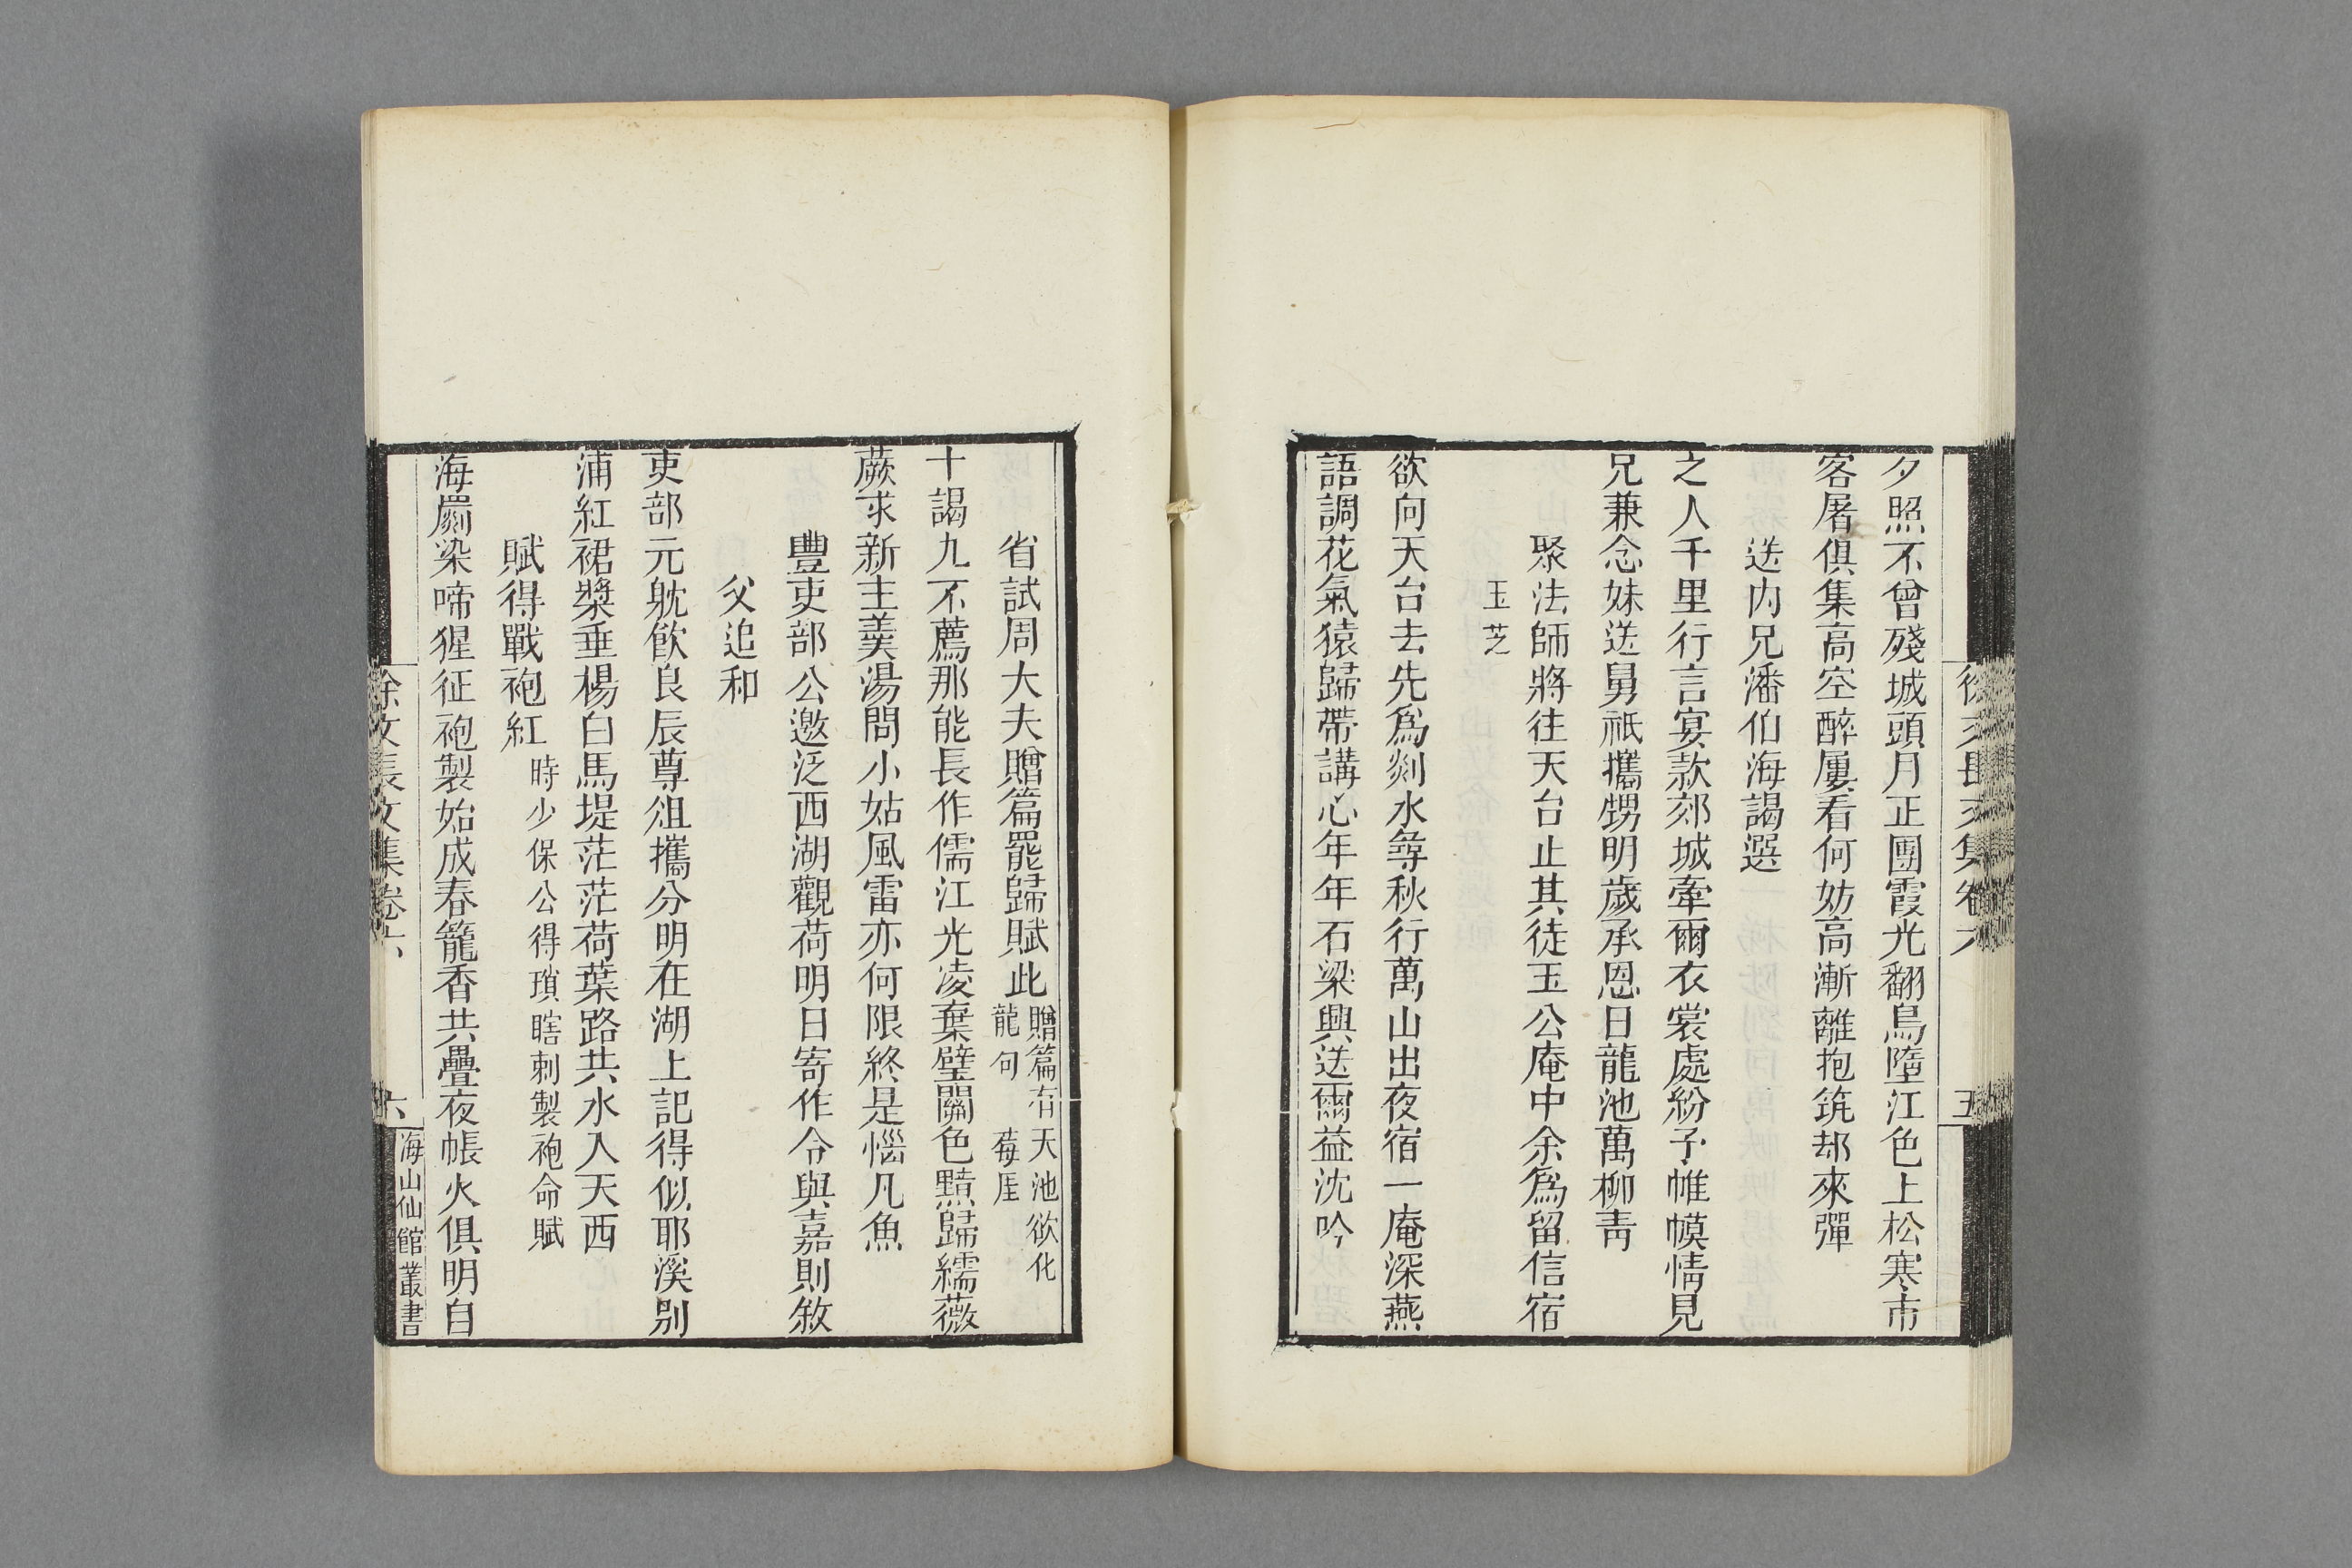 夕照不曾殘城頭月正團霞光翻鳥墮江色上松寒市
客屠俱集高空醉屢看何妨高漸離抱筑却來彈
送內兄潘伯海謁選
之人千里行言宴款郊城牽爾衣裳處紛予帷幙情見
兄兼念妹送舅祇攜甥明歲承恩日龍池萬柳青
聚法師將往天台止其徒玉公庵中余爲留信宿
玉芝
欲向天台去先爲剡水尋秋行萬山出夜宿一庵深燕
語調花氣猿歸帶講心年年石梁興送爾益沈吟
徐文長文集卷六
五
省試周大夫贈篇罷歸賦此
贈篇有天池欲化
龍句 莓厓
十謁九不薦那能長作儒江光凌棄璧關色黯歸繻薇
蕨求新主羹湯問小姑風雷亦何限終是惱凡魚
豐吏部公邀泛西湖觀荷明日寄作令與嘉則敘
父追和
吏部元躭飲良辰尊俎攜分明在湖上記得似耶溪別
浦紅裙槳垂楊白馬堤茫茫荷葉路共水入天西
賦得戰袍紅
時少保公得瑣瞎刺製袍命賦
海罽染啼猩征袍製始成春籠香共疊夜帳火俱明自
徐文長文集卷六
六
海山仙館叢書